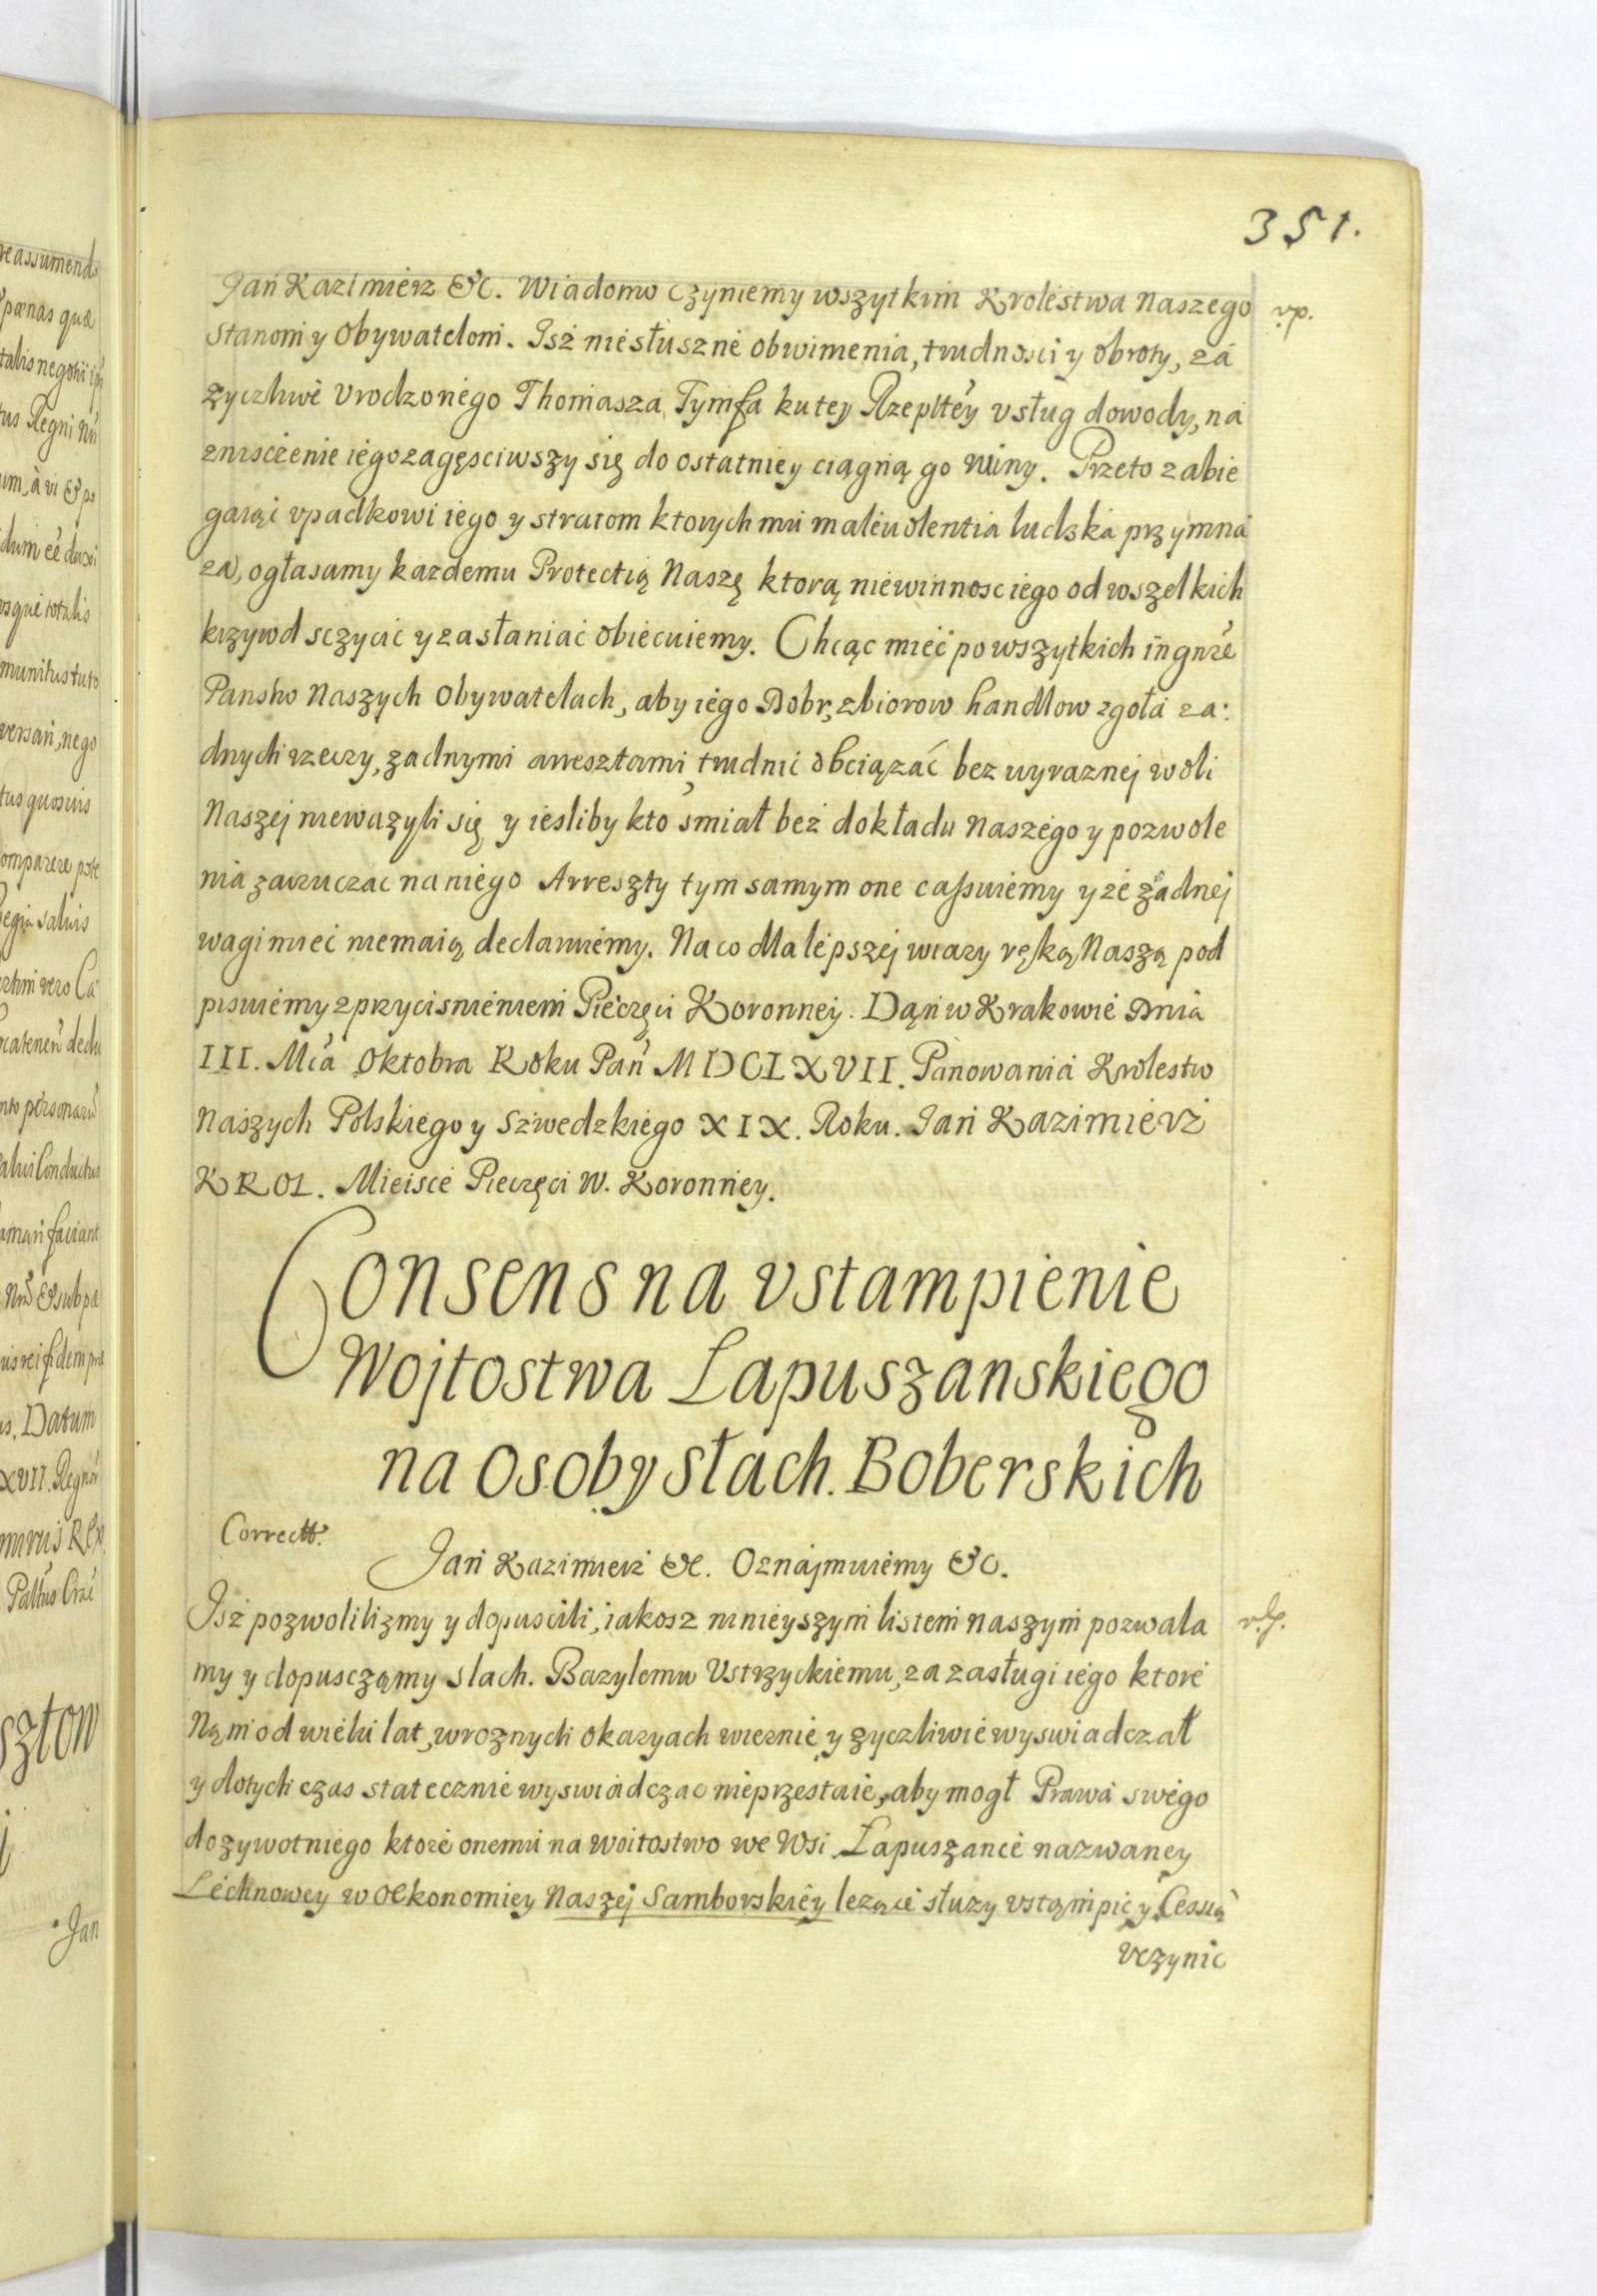 351.
Jan Kazimierz &c. Wiadomo czyniemy wszytkim Krolestwa Naszego vp.
Stanom y Obywatelom. Isz niesłuszne obwinienia, trudnosci y obroty, za
zyczliwe Vrodzonego Thomasza Tymfa ku tey Rzepltey vsług dowody, na
znisczenie iego zagęsciwszy się do ostatniey ciągną go ruiny. Przeto zabie
gaiąc vpadkowi iego y stratom ktorych mu malevolentia ludska przymna
za, ogłasamy kazdemu Protectią Naszę ktorą niewinnosc iego od wszelkich
krzywd sczycic y zasłaniac obiecuiemy. Chcąc miec po wszytkich in gnre
Panstw Naszych Obywatelach, aby iego Dobr, zbiorow handlow zgoła za:
dnych rzeczy, zadnymi aresztami trudnic obciązác bez wyraznej woli
Naszej niewazyli się y iesliby kto smiał bez dokładu Naszego y pozwole
nia zarzuczac na niego Arreszty tym samym one cassuiemy y ze zadnej
wagi miec niemaią declaruiemy. Na co dla lepszej wiary ręką Naszą pod
pisuiemy z przycisnieniem Pieczęci Koronney. Dan w Krakowie Dnia
III. Mca Oktobra Roku Pan MDCLXVII. Panowania Krolestw
Naszych Polskiego y Szwedzkiego XIX. Roku. Jan Kazimierz
KROL. Mieisce Pieczęci W. Koronney.
Consens na vstampienie
Wojtostwa Lapuszanskiego
na Osoby Słach. Boberskich
Correctt.
Jan Kazimierz &c. Oznajmuiemy &c.
Isz pozwolilizmy y dopuscili, iakosz ninieyszym listem naszym pozwala
my y dopusczamy slach. Bazylemu Vstrzyckiemu, za zasługi iego ktore
Nąm od wielu lat, w roznych okazyach wiernie y zyczliwie wyswiadczał
y dotych czas statecznie wyswiadczac nieprzestaie, aby mogł Prawa swego
dozywotniego ktore onemu na Woitostwo we Wsi Lapuszance nazwaney
Lechnowey w Oekonomiey Naszej Samborskiey lezące słuzy vstąmpic y Cessią
vczynic